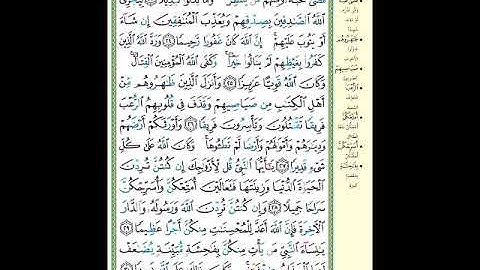 قَضَىٰ نَحْبَهُۥ وَمِنْهُم مَّن يَنتَظِرُ ۖ وَمَا بَدَّلُوا۟ تَبْدِيلًا ٢٣ لِّيَجْزِيَ
ٱللَّهُ ٱلصَّٰدِقِينَ بِصِدْقِهِمْ وَيُعَذِّبَ ٱلْمُنَٰفِقِينَ إِن شَآءَ
أَوْ يَتُوبَ عَلَيْهِمْ ۚ إِنَّ ٱللَّهَ كَانَ غَفُورًا رَّحِيمًا ٢٤ وَرَدَّ ٱللَّهُ ٱلَّذِينَ
كَفَرُوا۟ بِغَيْظِهِمْ لَمْ يَنَالُوا۟ خَيْرًا ۚ وَكَفَى ٱللَّهُ ٱلْمُؤْمِنِينَ ٱلْقِتَالَ ۚ
وَكَانَ ٱللَّهُ قَوِيًّا عَزِيزًا ٢٥ وَأَنزَلَ ٱلَّذِينَ ظَٰهَرُوهُم مِّنْ
أَهْلِ ٱلْكِتَٰبِ مِن صَيَاصِيهِمْ وَقَذَفَ فِي قُلُوبِهِمُ ٱلرُّعْبَ
فَرِيقًا تَقْتُلُونَ وَتَأْسِرُونَ فَرِيقًا ٢٦ وَأَوْرَثَكُمْ أَرْضَهُمْ
وَدِيَٰرَهُمْ وَأَمْوَٰلَهُمْ وَأَرْضًا لَّمْ تَطَـُٔوهَا ۚ وَكَانَ ٱللَّهُ عَلَىٰ كُلِّ
شَيْءٍ قَدِيرًا ٢٧ يَٰٓأَيُّهَا ٱلنَّبِيُّ قُل لِّأَزْوَٰجِكَ إِن كُنتُنَّ تُرِدْنَ
ٱلْحَيَوٰةَ ٱلدُّنْيَا وَزِينَتَهَا فَتَعَالَيْنَ أُمَتِّعْكُنَّ وَأُسَرِّحْكُنَّ
سَرَاحًا جَمِيلًا ٢٨ وَإِن كُنتُنَّ تُرِدْنَ ٱللَّهَ وَرَسُولَهُۥ وَٱلدَّارَ
ٱلْءَاخِرَةَ فَإِنَّ ٱللَّهَ أَعَدَّ لِلْمُحْسِنَٰتِ مِنكُنَّ أَجْرًا عَظِيمًا ٢٩
يَٰنِسَآءَ ٱلنَّبِيِّ مَن يَأْتِ مِنكُنَّ بِفَٰحِشَةٍ مُّبَيِّنَةٍ يُضَٰعَفْ
ظَٰهَرُوهُم
صَيَاصِيهِمْ
ٱلرُّعْبَ
أُمَتِّعْكُنَّ
أُسَرِّحْكُنَّ
بِفَٰحِشَةٍ